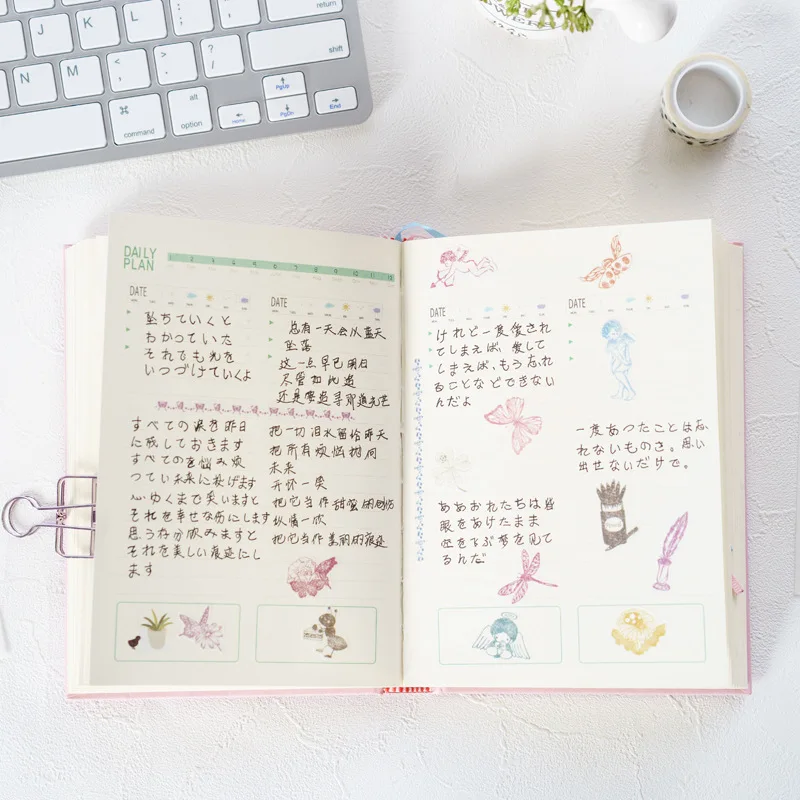 J
K
L
:
;
"
'
return
N
M
<
,
>
.
?
/
shift
⌘
command
alt
option
Home
PgUp
PgDn
End
DAILY
PLAN
1 2 3 4 5 6 7 8 9 10 11 12
DATE
坠ちていくと
わかっていた
それでも光を
いつづけていくよ
DATE
总有一天会从蓝天
坠落
这一点早已明白
尽管如此追
还是要追寻那道光芒
すべての涙を昨日
に残しておきます
すべてのを悩み
つてい未来に投げます
心ゆくまで笑いますと
それを幸せな伤にします
思うな分飲みますと
それを美しい痕迹にし
ます
把一切泪水留给昨天
把所有烦恼抛向
未来
开怀一笑
把它当作甜蜜的创伤
纵情一饮
把它当作美丽的痕迹
DATE
けれど一度愛され
てしまえば、愛して
しまえば、もう忘れ
ることなどできない
んだよ
ああおれたちは皆
眼をあけたまま
空をとぶ夢を見て
るんだ
DATE
一度あつたことは忘
れないものさ。思い
出せないだけで。